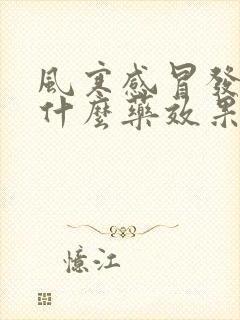 風寒感冒發
什麼藥效果
憶江